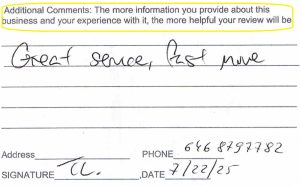 Additional Comments: The more information you provide about this
business and your experience with it, the more helpful your review will be
Great service, fast move
Address PHONE 6468797782
SIGNATURE ,DATE 7/22/25